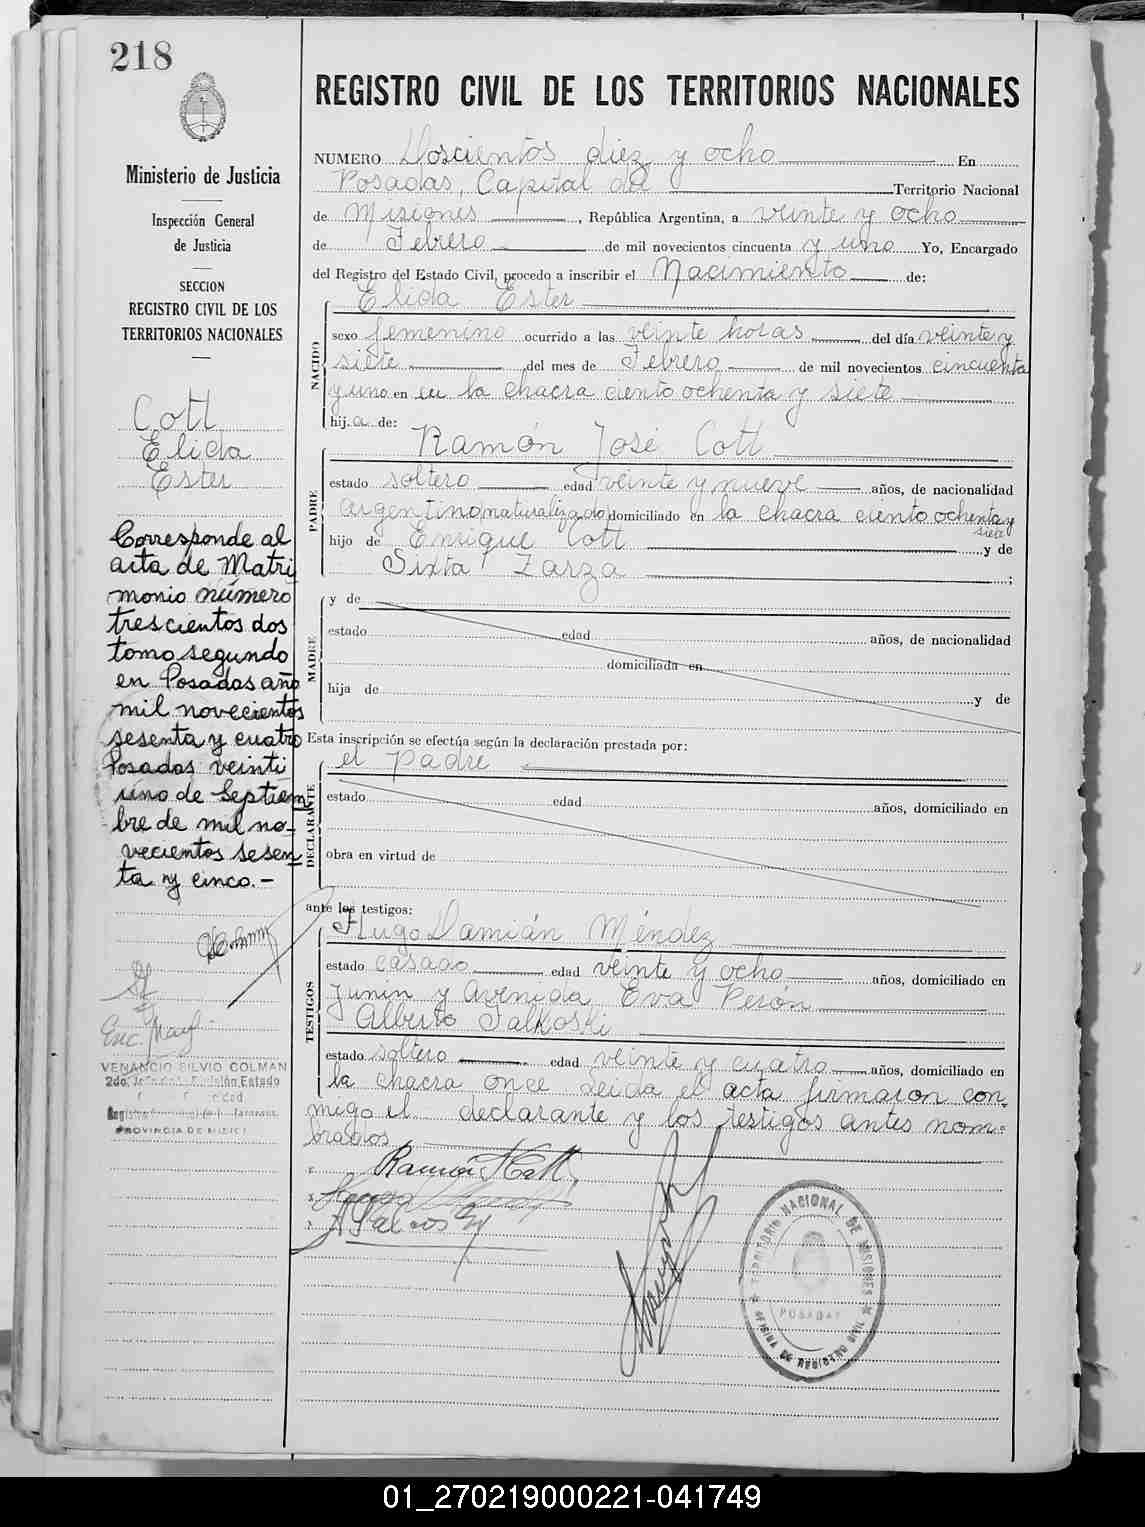 218
Ministerio de Justicia
Inspección General
de Justicia
SECCION
REGISTRO CIVIL DE LOS
TERRITORIOS NACIONALES
Cott
Elida
Ester
Corresponde al
acta de Matri
monio número
trescientos dos
tomo segundo
en Posadas año
mil novecientos
sesenta y cuatro
Posadas veinti
uno de Septiem
bre de mil no-
vecientos sesen
ta y cinco.-
VENANCIO SILVIO COLMAN
2do. Jefe División Estado
REGISTRO CIVIL DE LOS TERRITORIOS NACIONALES
NUMERO Doscientos diez y ocho En
Posadas, Capital del Territorio Nacional
de Misiones, República Argentina, a veinte y ocho
de Febrero de mil novecientos cincuenta y uno Yo, Encargado
del Registro del Estado Civil, procedo a inscribir el Nacimiento de:
NACIDO
Elida Ester
sexo femenino ocurrido a las veinte horas del día veinte y
siete del mes de Febrero de mil novecientos cincuenta
y uno en en la chacra ciento ochenta y siete
hij a de:
PADRE
Ramón José Cott
estado soltero edad veinte y nueve años, de nacionalidad
Argentino naturalizado domiciliado en la chacra ciento ochenta y
siete
hijo de Enrique Cott y de
Sixta Zarza ;
MADRE
y de
estado edad años, de nacionalidad
domiciliada en
hija de y de
Esta inscripción se efectúa según la declaración prestada por:
DECLARANTE
el Padre
estado edad años, domiciliado en
obra en virtud de
ante los testigos:
TESTIGOS
Hugo Damián Méndez
estado casado edad veinte y ocho años, domiciliado en
Junín y Avenida Eva Perón
Alberto Falkoski
estado soltero edad veinte y cuatro años, domiciliado en
la chacra once Leida el acta firmaron con-
migo el declarante y los testigos antes nom-
brados
Ramón J Cott
TERRITORIO NACIONAL DE MISIONES
POSADAS
OFICINA DE REGISTRO CIVIL
01_270219000221-041749